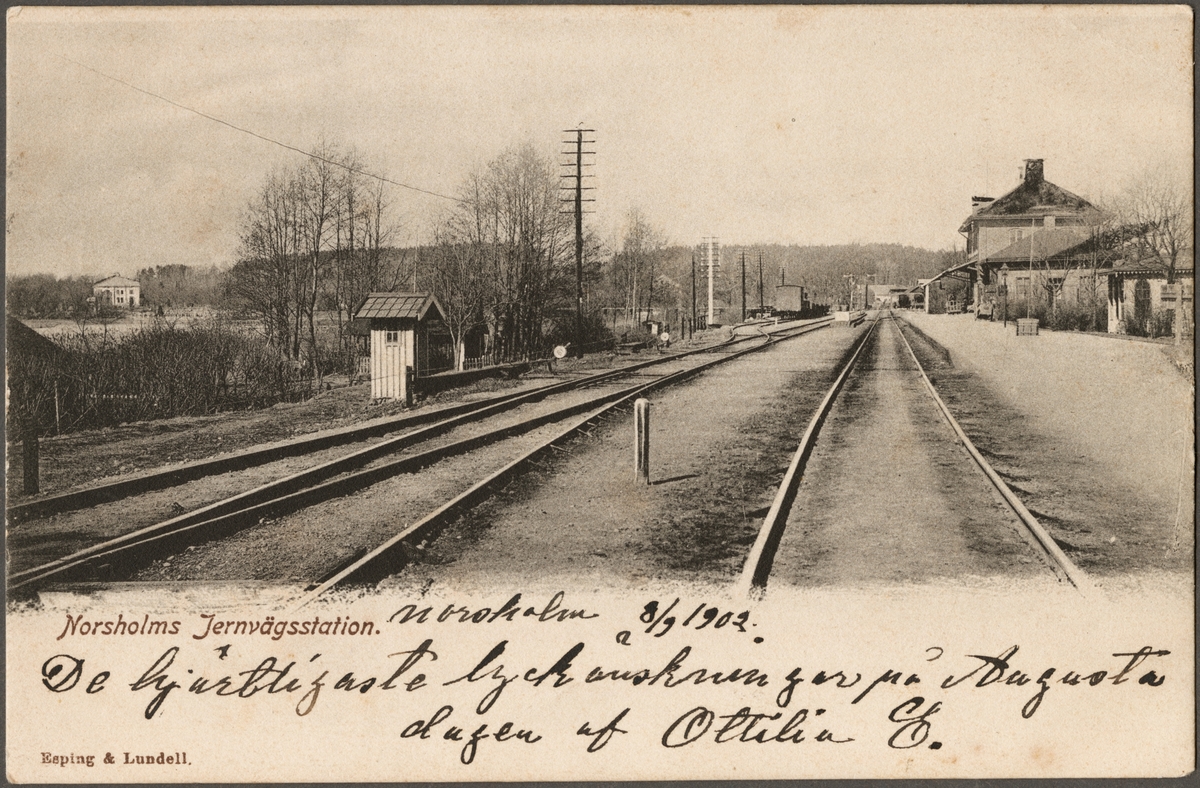 Norsholms Jernvägsstation. Norsholm 8/9 1902.
De hjärtligaste lyckönskningar på Augusta
dagen af Ottilia E.
Esping & Lundell.